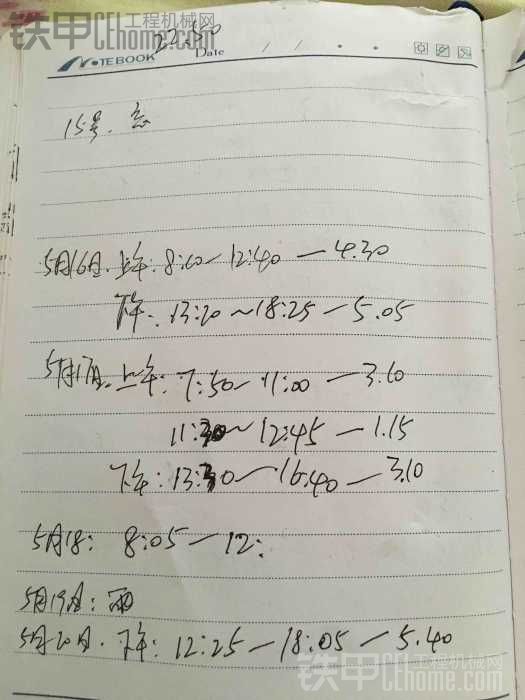 铁甲 工程机械网 CEhome.com
NOTEBOOK Date / /
15号.
5月16日. 上午: 8:10—12:40—4.30
下午: 13:20~18:25—5.05
5月17日. 上午: 7:50—11:00—3.10
11:30~12:45—1.15
下午: 13:30—16.40—3.10
5月18: 8:05—12:
5月19日: 雨
5月20日. 下午: 12:25—18:05—5.40
铁甲 工程机械网 CEhome.com